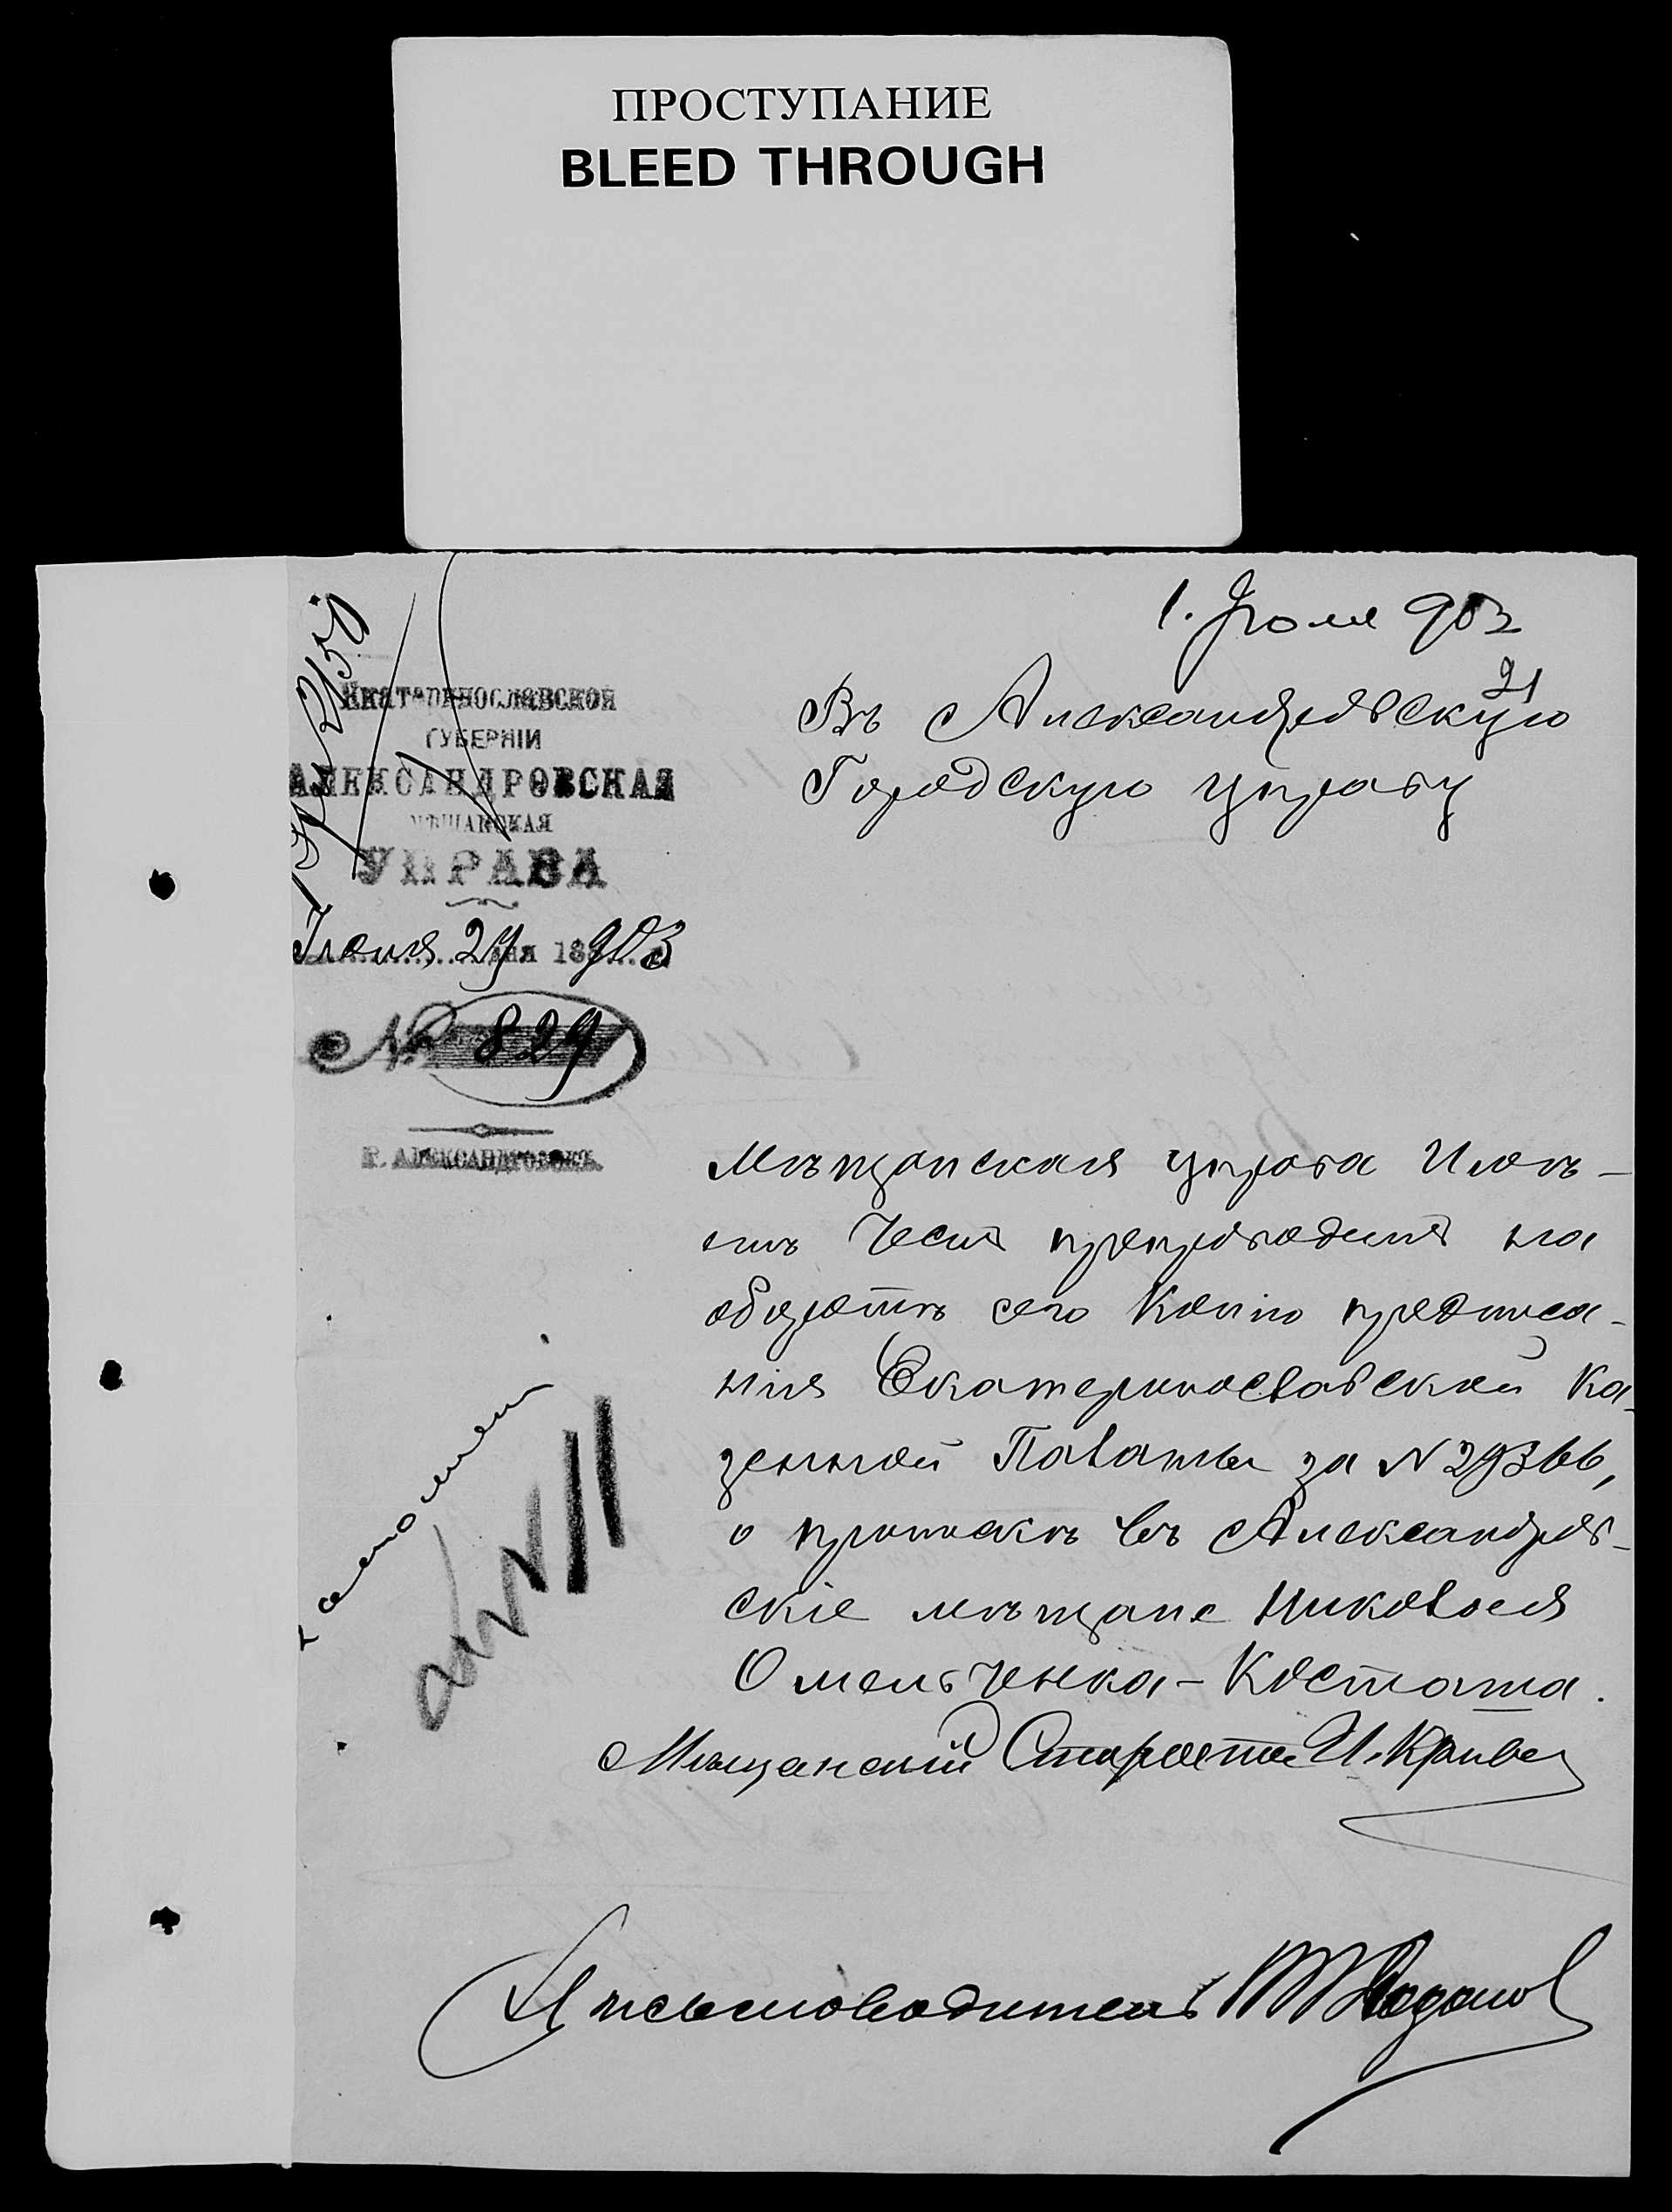 ПРОСТУПАНИЕ
BLEED THROUGH
1. Июля 903
21
Екатеринославской
ГУБЕРНІИ
АЛЕКСАНДРОВСКАЯ
МѢЩАНСКАЯ
УПРАВА
дня 189 903
№ 829
Г. АЛЕКСАНДРОВСКЪ
Въ Александровскую
Городскую управу
Мѣщанская управа имѣ-
етъ честь препроводить на
оборотѣ сего копію предписа-
нія Екатеринославской Ка-
зенной Палаты за N 29366,
о припискѣ въ Александров-
скіе мѣщане Николая
Омельченка-Костата.
Мѣщанскій Староста И. Кривец
Письмоводитель